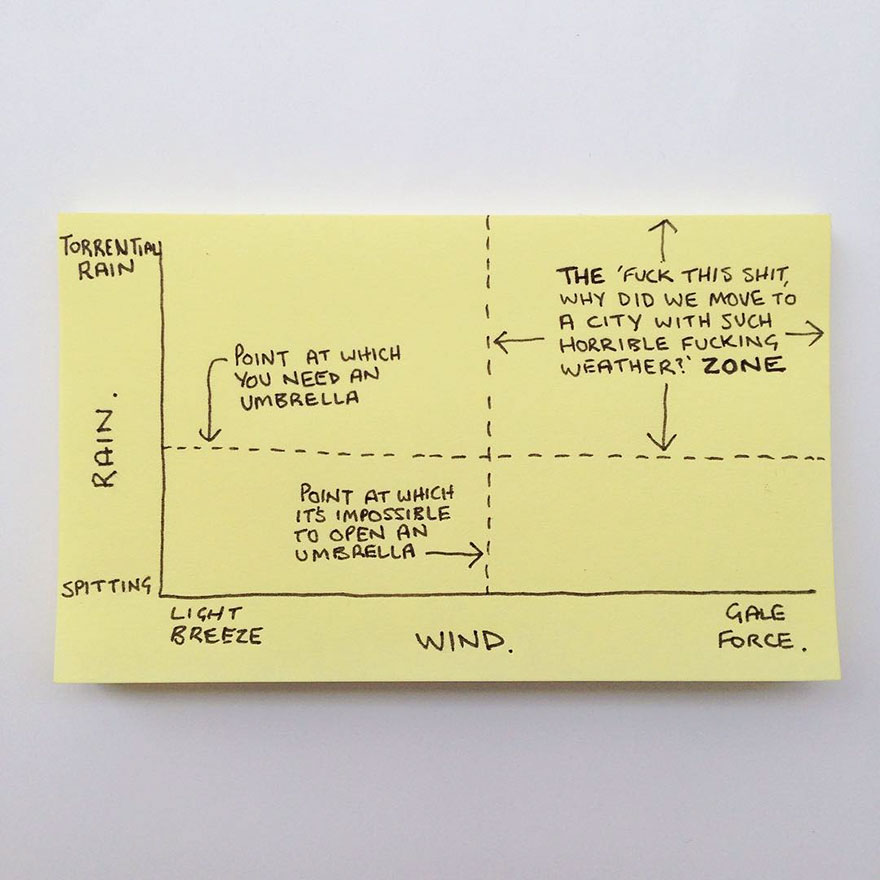 TORRENTIAL
RAIN
THE 'FUCK THIS SHIT,
WHY DID WE MOVE TO
A CITY WITH SUCH
HORRIBLE FUCKING
WEATHER?' ZONE
POINT AT WHICH
YOU NEED AN
UMBRELLA
RAIN.
POINT AT WHICH
IT'S IMPOSSIBLE
TO OPEN AN
UMBRELLA
SPITTING
LIGHT
BREEZE
WIND.
GALE
FORCE.